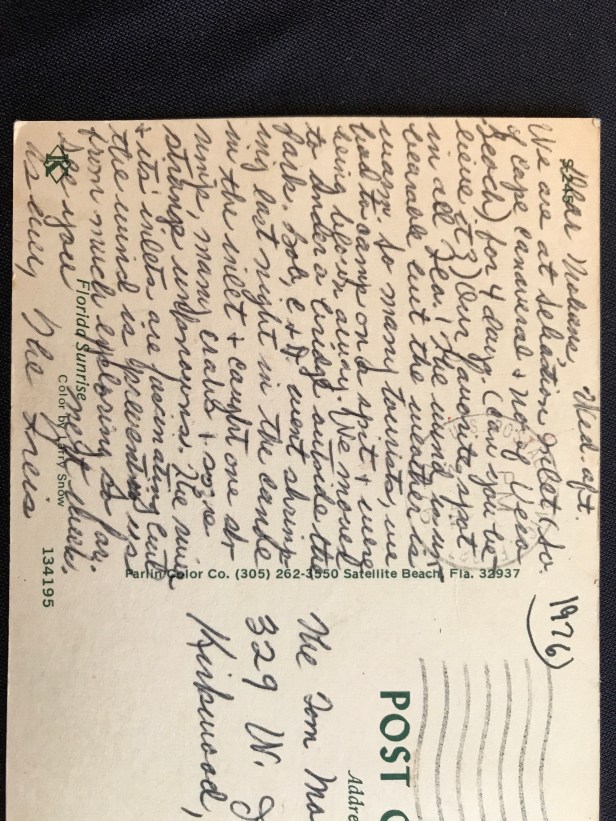 Wed. aft.
Dear
We are at Sebastian Inlet (So.
of Cape Canaveral + No. of Vero
Beach) for 4 days. (Can you be-
lieve it?) Our favorite spot
in all Fla.! The wind isn't
bearable but the weather is
warm. So many tourists, we
had to camp on a spit + were
being blown away. We moved
to under a bridge outside the
park. Bob, C + J went shrimp-
ing last night in the canoe
in the inlet + caught one dr
ump, many crabs + some
strange unknowns. The river
+ its inlets are fascinating but
the wind is preventing us
from much exploring so far.
See you next week.
As ever, The
S245
K
Florida Sunrise
Color by Larry Snow
134195
Parlin Color Co. (305) 262-3550 Satellite Beach, Fla. 32937
1976)
POST C
Addre
The Tom Mo
329 W. J
Kirkwood,